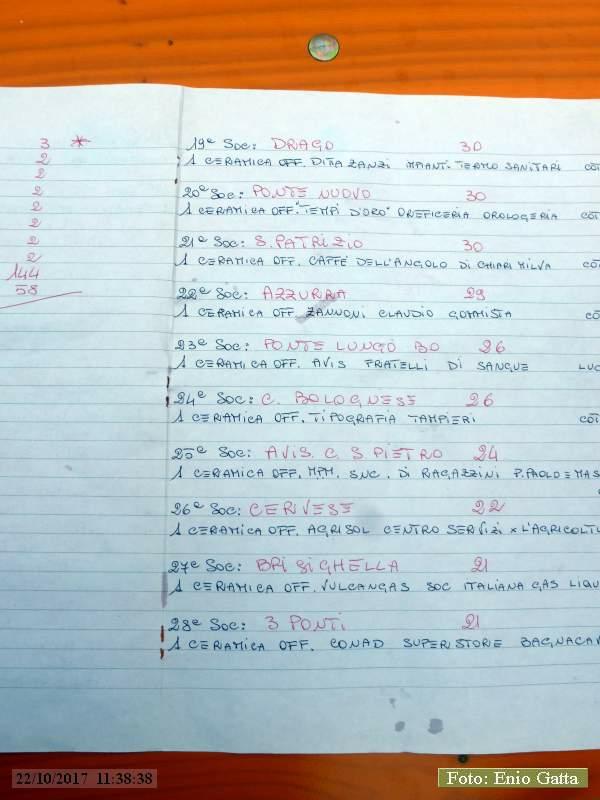 3 *
2
2
2
2
2
2
2
144
58
19ª SOC: DRAGO 30
1 CERAMICA OFF. DITTA ZANZI IMPIANTI TERMO SANITARI
20ª SOC: PONTE NUOVO 30
1 CERAMICA OFF. "TEMPI D'ORO" OREFICERIA OROLOGERIA
21ª SOC: S. PATRIZIO 30
1 CERAMICA OFF. CAFFÈ DELL'ANGOLO DI CHIARI MILVA
22ª SOC: AZZURRA 29
1 CERAMICA OFF. ZANNONI CLAUDIO GOMMISTA
23ª SOC: PONTE LUNGO BO 26
1 CERAMICA OFF. AVIS FRATELLI DI SANGUE LUG
24ª SOC: C. BOLOGNESE 26
1 CERAMICA OFF. TIPOGRAFIA TAMPIERI
25ª SOC: AVIS C. S. PIETRO 24
1 CERAMICA OFF. MPM. SNC. DI RAGAZZINI P. PAOLO E MAS
26ª SOC: CERVESE 22
1 CERAMICA OFF. AGRISOL CENTRO SERVIZI X L'AGRICOLTU
27ª SOC: BRISIGHELLA 21
1 CERAMICA OFF. VULCANGAS SOC ITALIANA GAS LIQU
28ª SOC: 3 PONTI 21
1 CERAMICA OFF. CONAD SUPERSTORE BAGNACAV
22/10/2017 11:38:38
Foto: Enio Gatta